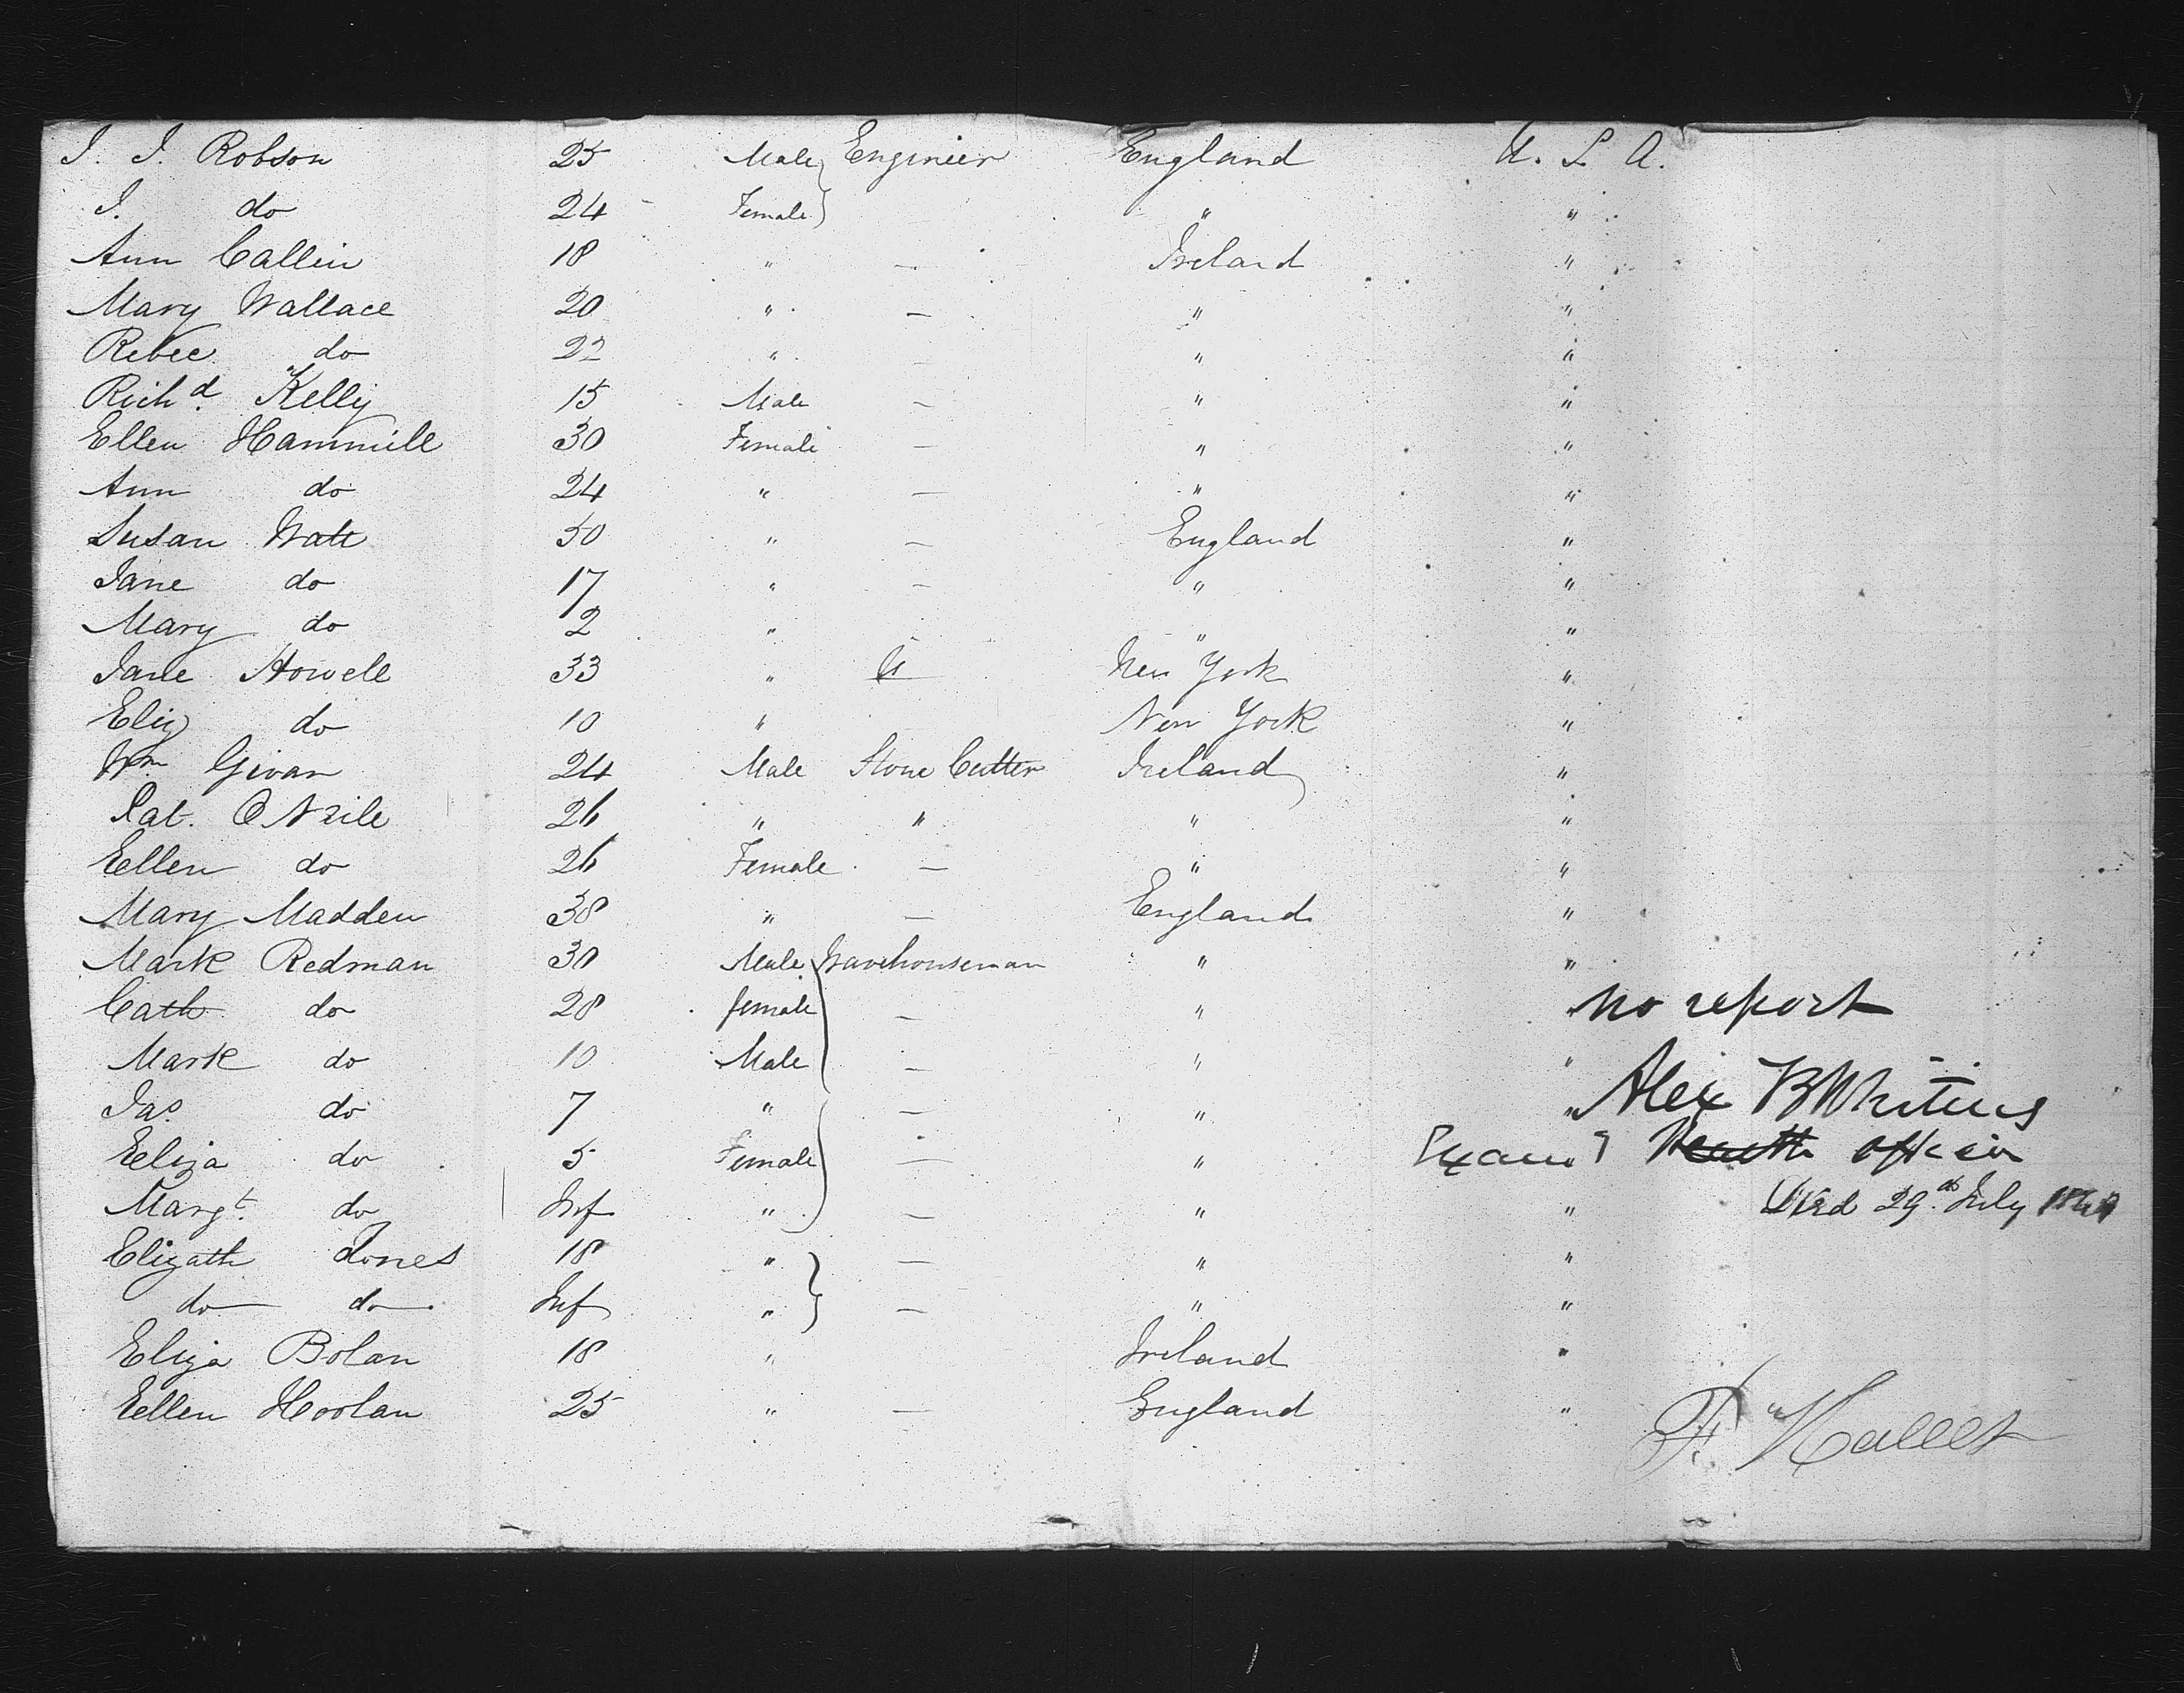 J. J. Robson 25 Male Engineer England U. S. A.
J. do 24 Female " "
Ann Callin 18 " — Ireland "
Mary Wallace 20 " — " "
Rebec do 22 " — " "
Richd. Kelly 15 Male — " "
Ellen Hammill 30 Female — " "
Ann do 24 " — " "
Susan Watt 50 " — England "
Jane do 17 " — " "
Mary do 2 " " "
Jane Howell 33 " New York "
Eliz do 10 " New York "
Wm Givan 24 Male Stone Cutter Ireland "
Pat. O Neile 26 " " " "
Eellen do 26 Female — " "
Mary Madden 38 " — England "
Mark Redman 30 Male Warehouseman " "
Cath do 28 female — " " no report
Mark do 10 Male — " "
Jas. do 7 " — " " Alex B Whiting
Eeliza do 5 Female — " Health officer
Margt. do Inf " — " " 29th July
Elizath Jones 18 " — " "
do do Inf " — " "
Eliza Bolan 18 " Ireland "
Eellen Hoolan 25 " — England "
F. Hallet